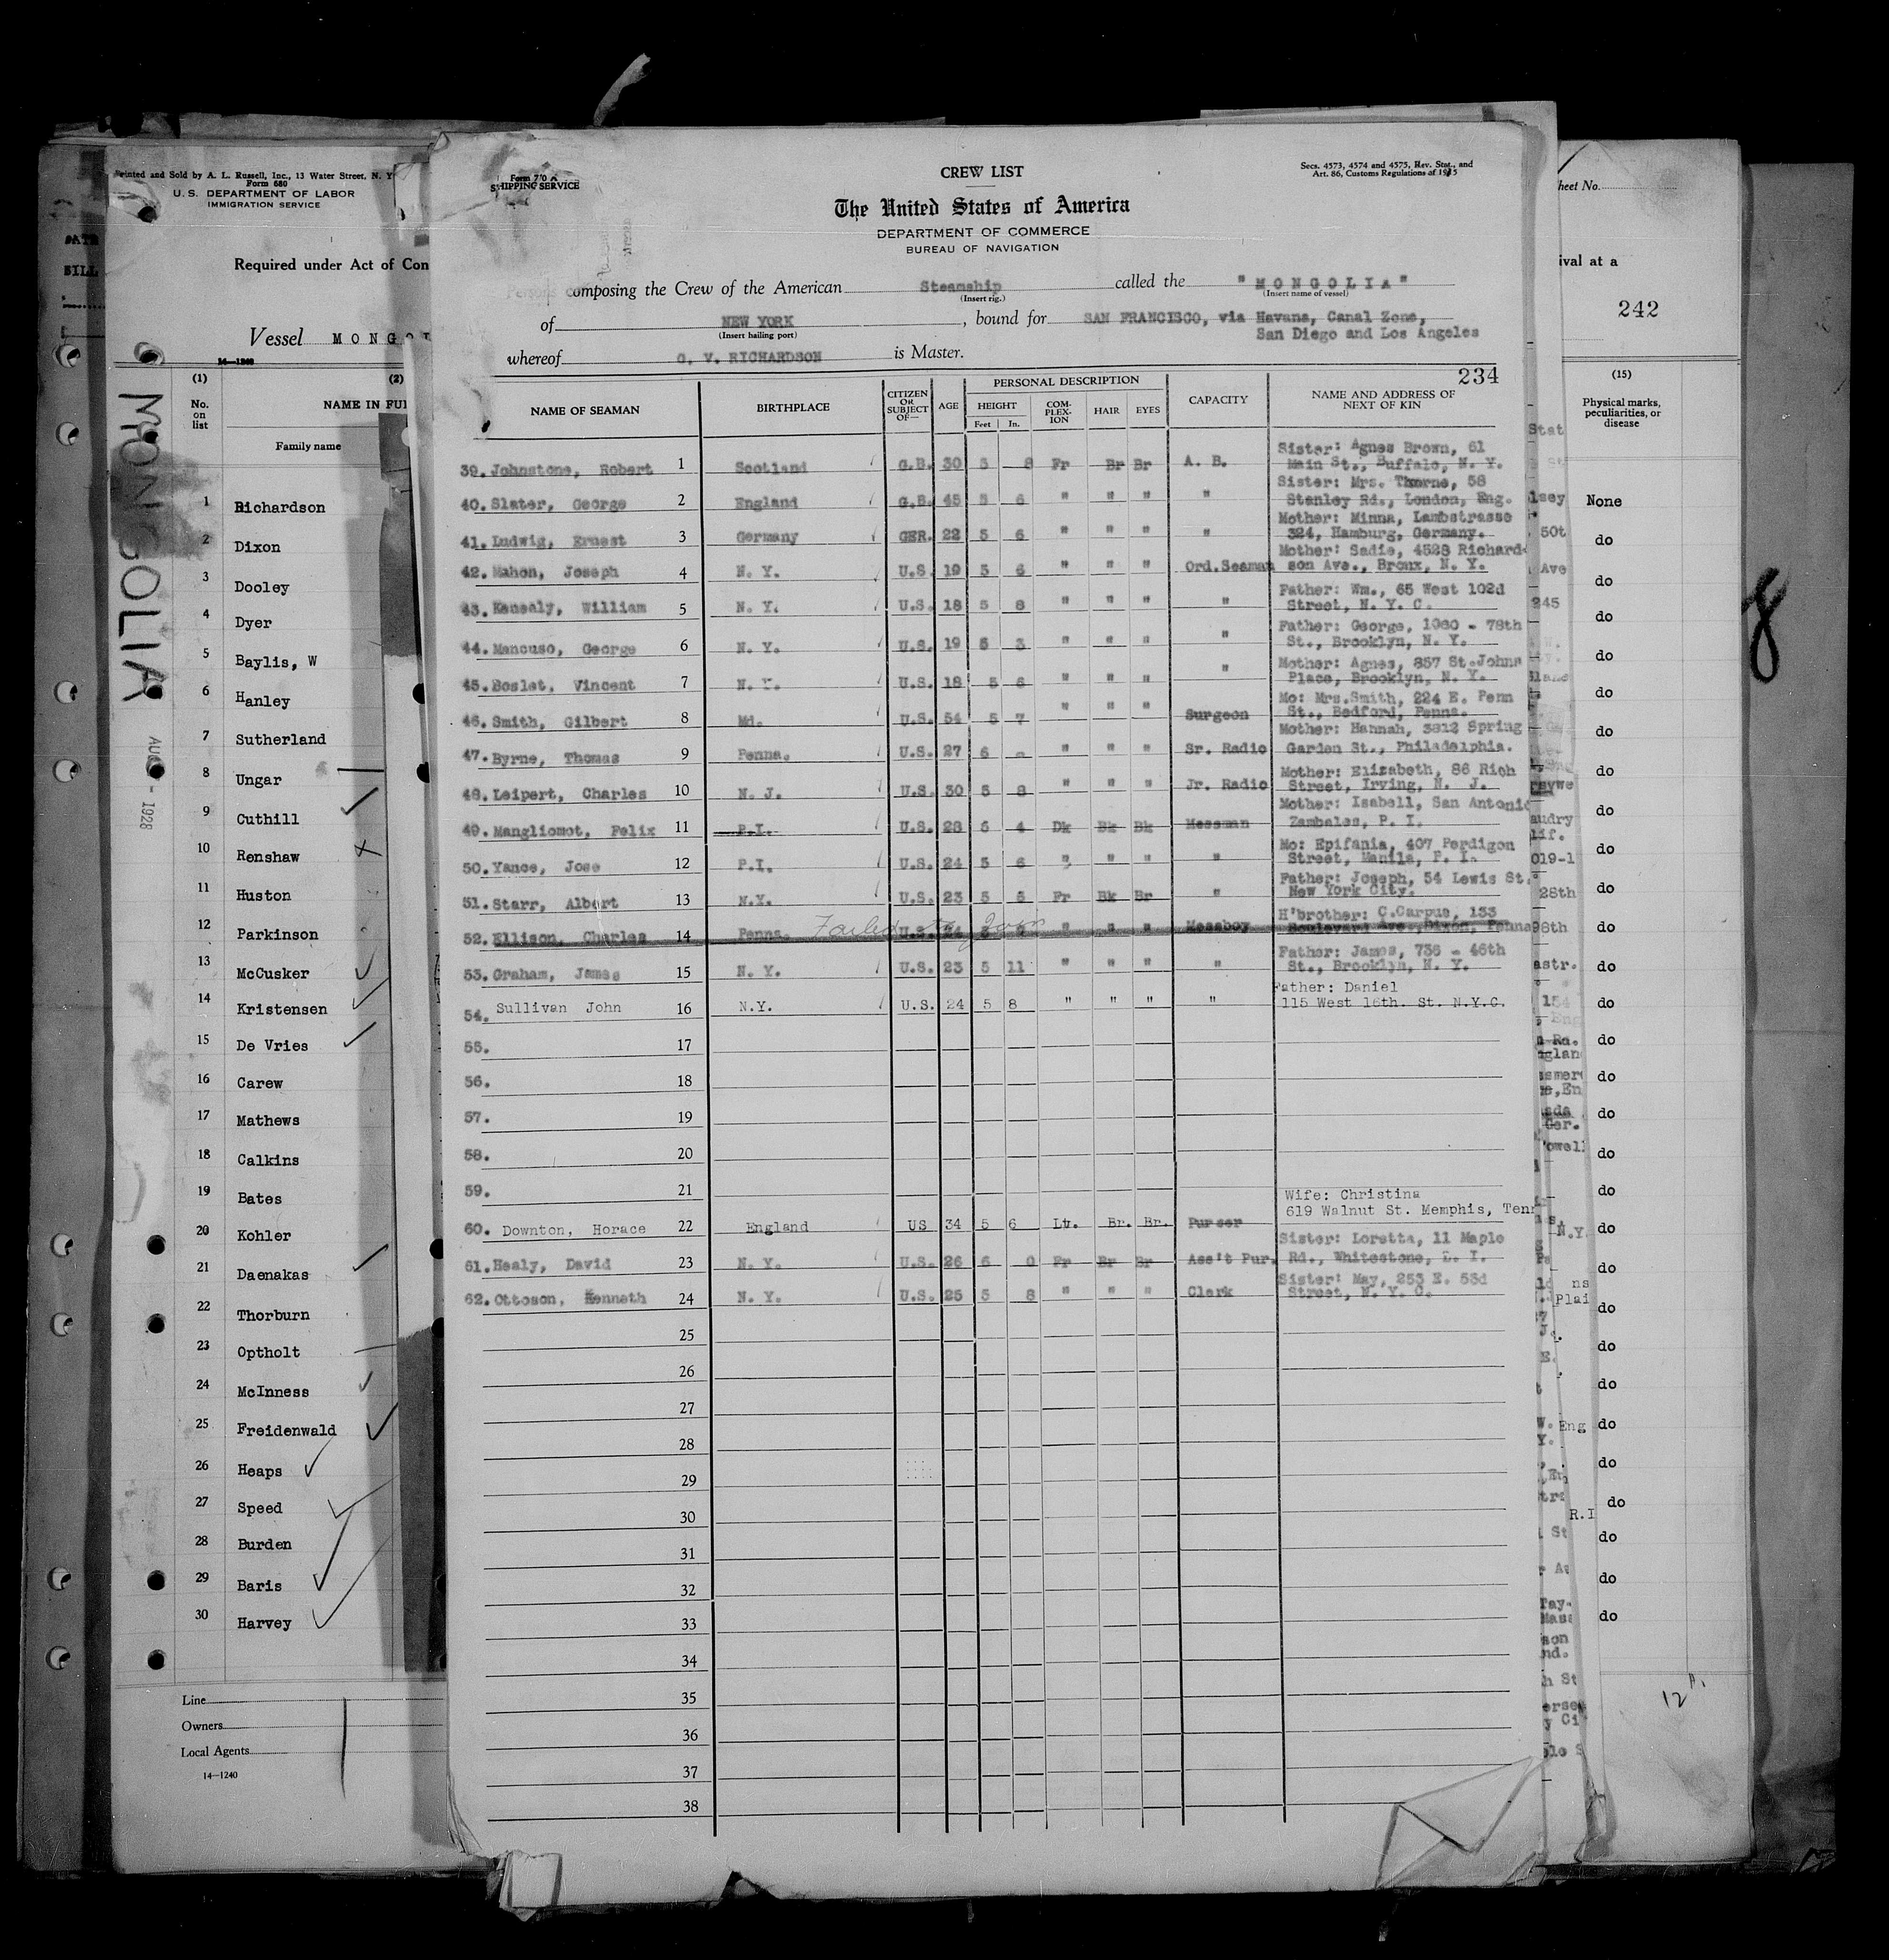 Printed and Sold by A. L. Russell, Inc., 13 Water Street, N. Y
Form 680
U. S. DEPARTMENT OF LABOR
IMMIGRATION SERVICE
Required under Act of Con
Vessel MONGOL
14—1240
(1)
No. on list
(2)
NAME IN FUL
Family name
1 Richardson
2 Dixon
3 Dooley
4 Dyer
5 Baylis, W
6 Hanley
7 Sutherland
8 Ungar
9 Cuthill
10 Renshaw
11 Huston
12 Parkinson
13 McCusker
14 Kristensen
15 De Vries
16 Carew
17 Mathews
18 Calkins
19 Bates
20 Kohler
21 Daenakas
22 Thorburn
23 Optholt
24 McInness
25 Freidenwald
26 Heaps
27 Speed
28 Burden
29 Baris
30 Harvey
Line
Owners
Local Agents
14—1240
MONGOLIA
AUG - 1928
SHIPPING SERVICE
CREW LIST
Secs. 4573, 4574 and 4575, Rev. Stat., and
Art. 86, Customs Regulations of 1915
The United States of America
DEPARTMENT OF COMMERCE
BUREAU OF NAVIGATION
composing the Crew of the American Steamship called the "MONGOLIA"
(Insert rig.) (Insert name of vessel)
of NEW YORK, bound for SAN FRANCISCO, via Havana, Canal Zone,
(Insert hailing port) San Diego and Los Angeles
whereof G. V. RICHARDSON is Master.
234
NAME OF SEAMAN BIRTHPLACE CITIZEN OR SUBJECT OF— AGE PERSONAL DESCRIPTION CAPACITY NAME AND ADDRESS OF NEXT OF KIN
HEIGHT COMPLEXION HAIR EYES
Feet In.
39. Johnstone, Robert 1 Scotland G.B. 30 5 8 Fr Br Br A. B. Sister: Agnes Brown, 61 Main St., Buffalo, N. Y.
40. Slater, George 2 England G.B. 45 5 6 " " " " Sister: Mrs. Thorne, 58 Stanley Rd., London, Eng.
41. Ludwig, Ernest 3 Germany GER. 22 5 6 " " " " Mother: Minna, Lambstrasse 324, Hamburg, Germany.
42. Mahon, Joseph 4 N. Y. U.S. 19 5 6 " " " Ord.Seaman Mother: Sadie, 4528 Richardson Ave., Bronx, N. Y.
43. Kenealy, William 5 N. Y. U.S. 18 5 8 " " " " Father: Wm., 65 West 102d Street, N. Y. C.
44. Mancuso, George 6 N. Y. U.S. 19 5 3 " " " " Father: George, 1060 - 78th St., Brooklyn, N. Y.
45. Boslet, Vincent 7 N. Y. U.S. 18 5 6 " " " " Mother: Agnes, 857 St.Johns Place, Brooklyn, N. Y.
46. Smith, Gilbert 8 Md. U.S. 54 5 7 " " " Surgeon Mo: Mrs.Smith, 224 E. Penn St., Bedford, Penna.
47. Byrne, Thomas 9 Penna. U.S. 27 6 - " " " Sr. Radio Mother: Hannah, 3812 Spring Garden St., Philadelphia.
48. Leipert, Charles 10 N. J. U.S. 30 5 8 " " " Jr. Radio Mother: Elizabeth, 86 Rich Street, Irving, N. J.
49. Mangliomot, Felix 11 P.I. U.S. 28 5 4 Dk Bk Bk Messman Mother: Isabell, San Antonio Zambales, P. I.
50. Yance, Jose 12 P.I. U.S. 24 5 6 " " " " Mo: Epifania, 407 Perdigon Street, Manila, P. I.
51. Starr, Albert 13 N.Y. U.S. 23 5 5 Fr Bk Br " Father: Joseph, 54 Lewis St. New York City.
52. Ellison, Charles 14 Penna. Failed to join U.S. " " " Messboy H'brother: C.Carpus, 133 Boulevard Ave., Dixon, Penna
53. Graham, James 15 N. Y. U.S. 23 5 11 " " " " Father: James, 736 - 46th St., Brooklyn, N. Y.
54. Sullivan John 16 N.Y. U.S. 24 5 8 " " " " Father: Daniel 115 West 16th. St. N.Y.C.
55. 17
56. 18
57. 19
58. 20
59. 21
60. Downton, Horace 22 England US 34 5 6 Lt. Br. Br. Purser Wife: Christina 619 Walnut St. Memphis, Tenn
61. Healy, David 23 N. Y. U.S. 26 6 0 Fr Br Br Ass't Pur. Sister: Loretta, 11 Maple Rd., Whitestone, L. I.
62. Ottoson, Kenneth 24 N. Y. U.S. 25 5 8 " " " Clerk Sister: May, 253 E. 53d Street, N. Y. C.
25
26
27
28
29
30
31
32
33
34
35
36
37
38
heet No.
ival at a
242
(15)
Physical marks, peculiarities, or disease
None
do
do
do
do
do
do
do
do
do
do
do
do
do
do
do
do
do
do
do
do
do
do
do
do
do
do
do
do
do
8